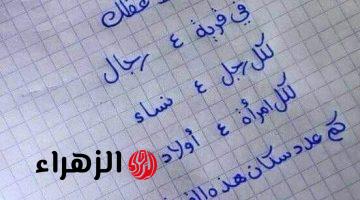 عقلك
في قرية ٤ رجال
لكل رجل ٤ نساء
لكل امرأة ٤ أولاد
كم عدد سكان هذه
الزهراء